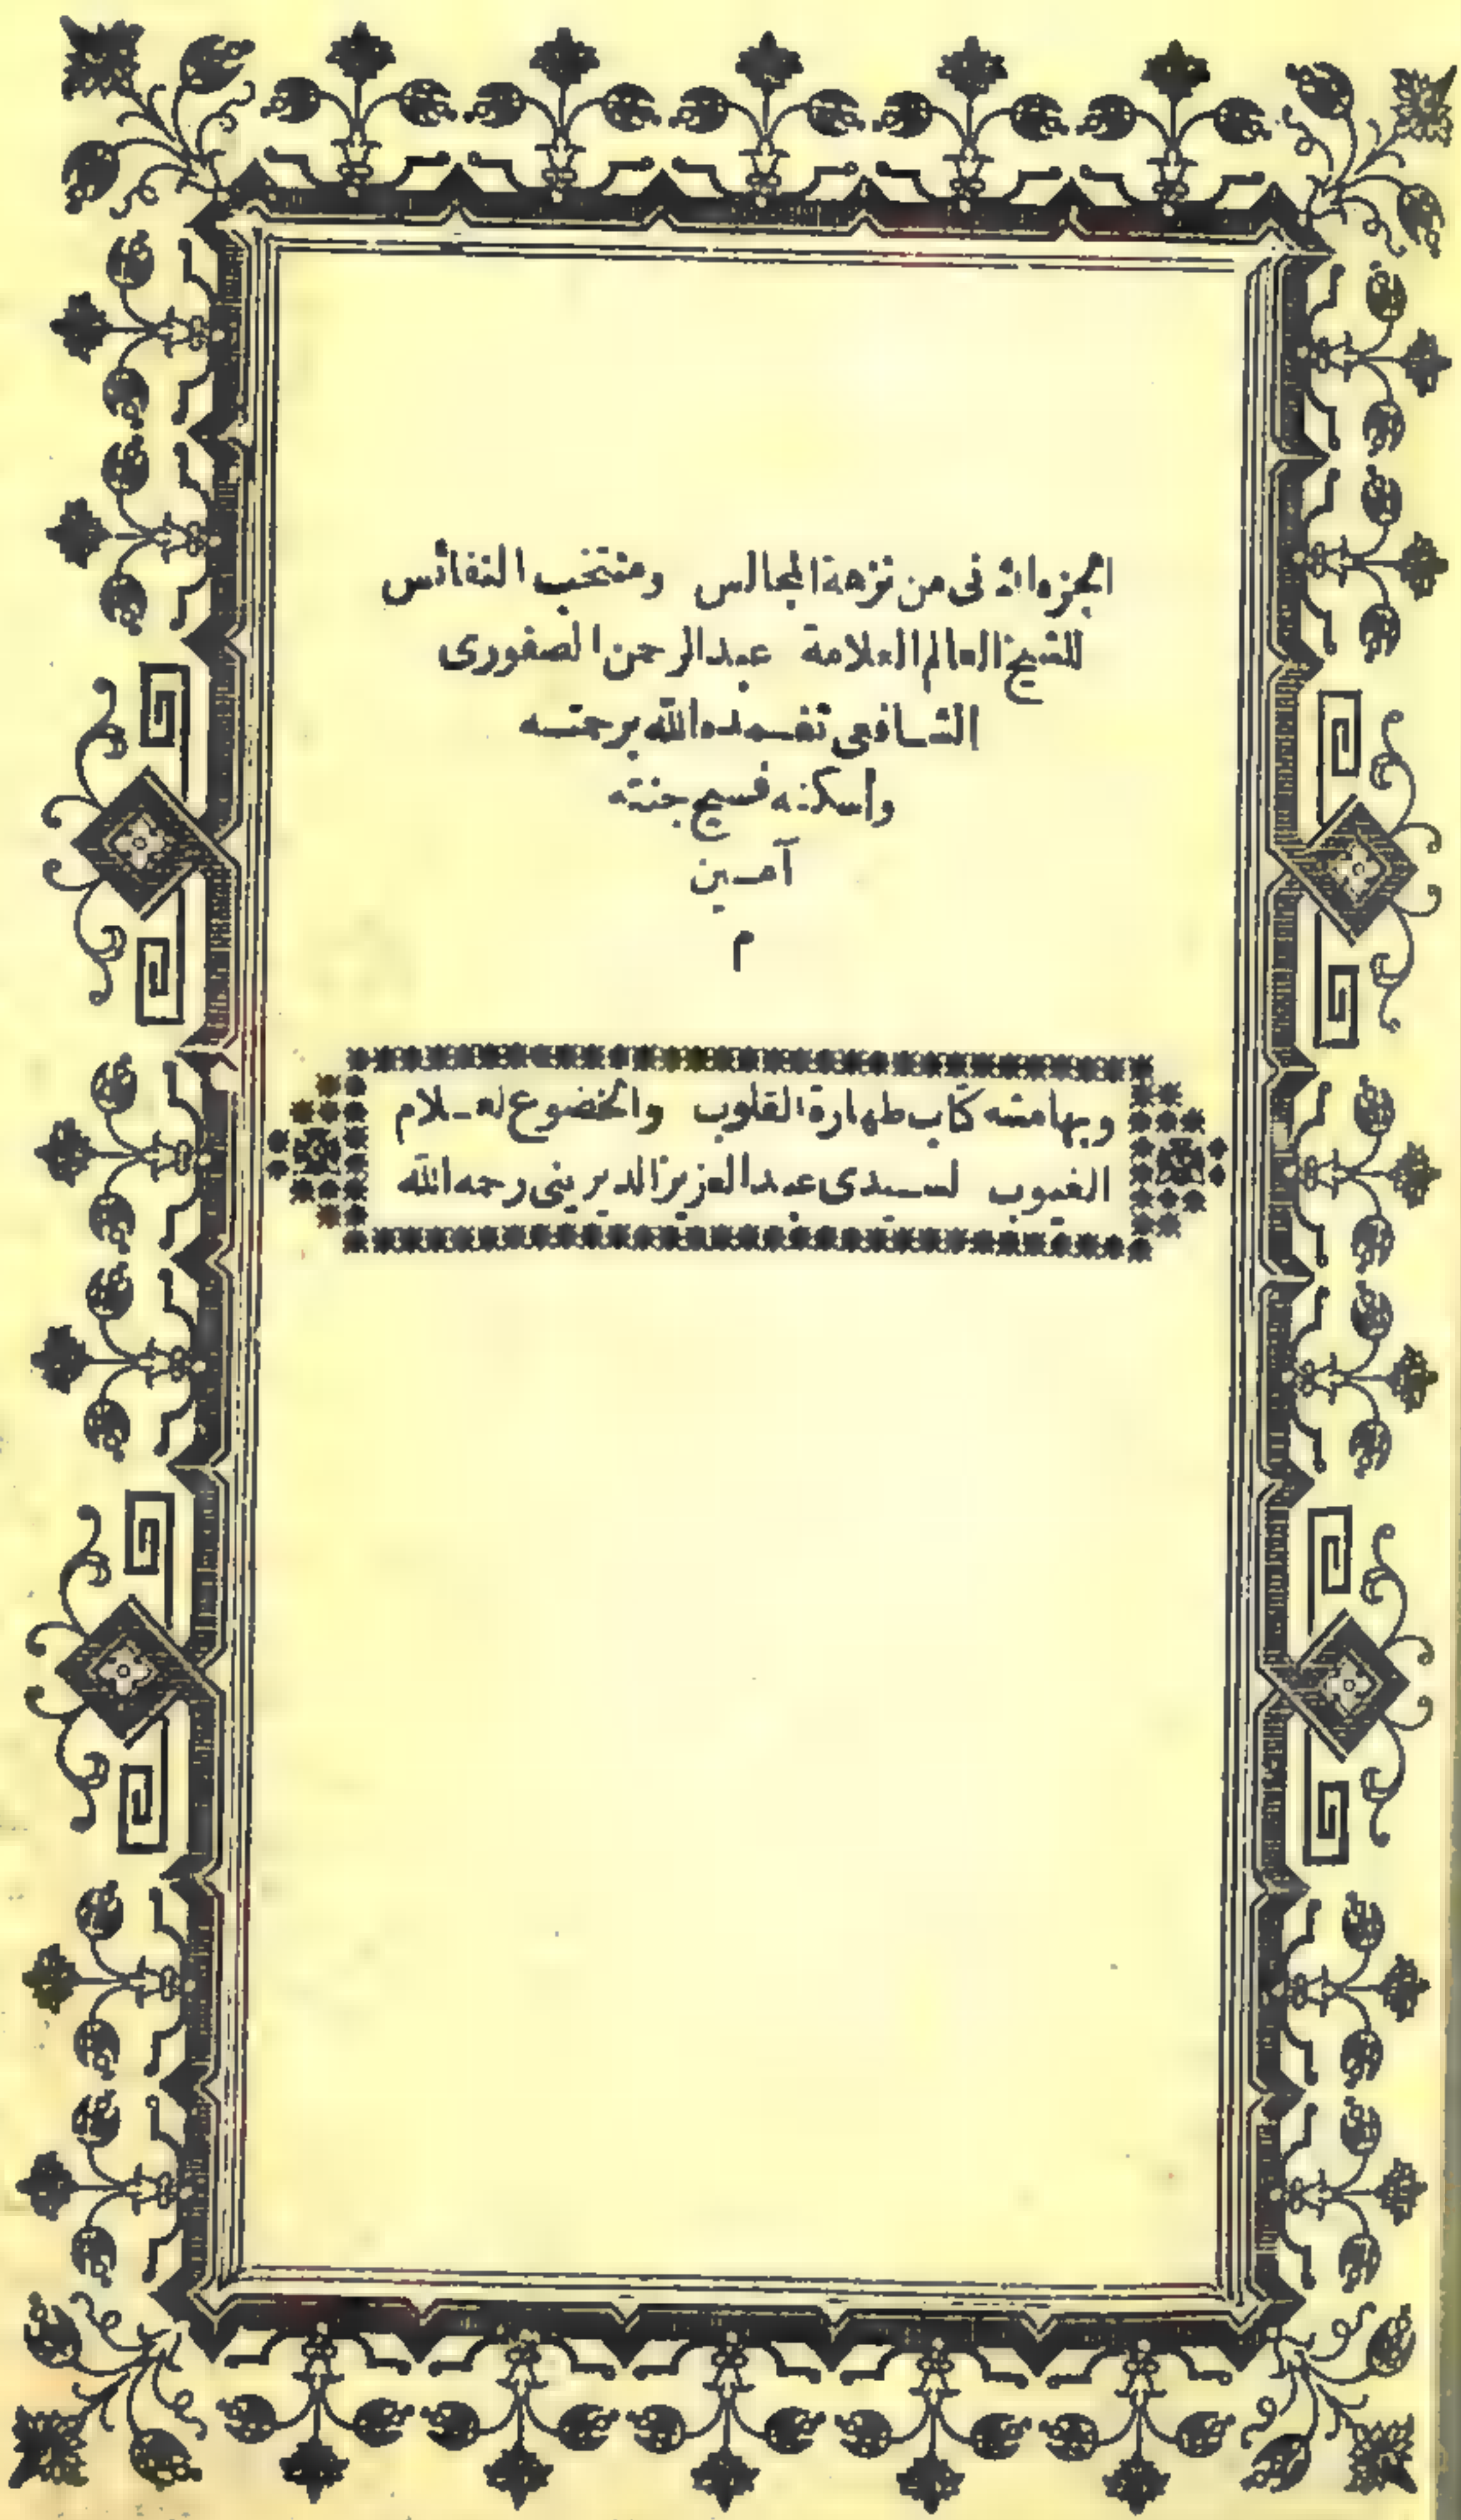 الجزء الثانى من نزهة المجالس ومنتخب النفائس
للشيخ العالم العلامة عبدالرحمن الصفورى
الشافعى تغمده الله برحمته
واسكنه فسيح جنته
آمين
م
وبهامشه كتاب طهارة القلوب والخضوع لعلام
الغيوب لسيدى عبدالعزيز الديرينى رحمه الله